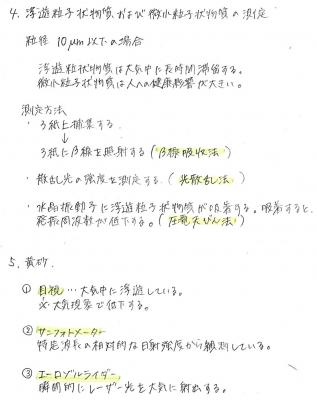 4. 浮遊粒子状物質および微小粒子状物質の測定
粒径 10μm以下の場合
浮遊粒子状物質は大気中に長時間滞留する。
微小粒子状物質は人への健康影響が大きい。
測定方法
・ろ紙上捕集する。
↓
ろ紙にβ線を照射する (β線吸収法)
・散乱光の強度を測定する。(光散乱法)
・水晶振動子に浮遊粒子状物質が吸着する。吸着すると、
発振周波数が低下する。(圧電天びん法)
5. 黄砂.
① 目視 … 大気中に浮遊している。
※ 大気現象で低下する。
② サンフォトメーター
特定波長の相対的な日射強度から観測している。
③ エーロゾルライダー
瞬間的にレーザー光を大気に射出する。